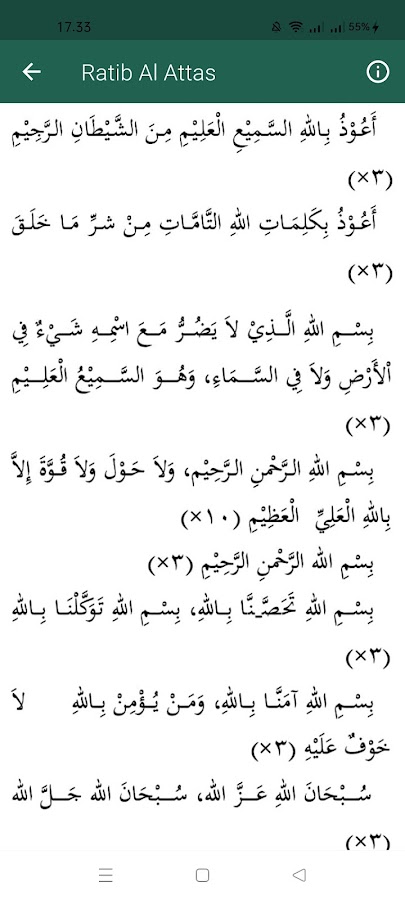 17.33 55%
Ratib Al Attas
أَعُوْذُ بِاللهِ السَّمِيْعِ الْعَلِيْمِ مِنَ الشَّيْطَانِ الرَّجِيْمِ
(٣×)
أَعُوْذُ بِكَلِمَاتِ اللهِ التَّامَّاتِ مِنْ شرِّ مَا خَلَقَ
(٣×)
بِسْمِ اللهِ الَّذِيْ لاَ يَضُرُّ مَعَ اسْمِهِ شَيْءٌ فِي
اْلأَرْضِ وَلاَ فِي السَّمَاءِ، وَهُوَ السَّمِيْعُ الْعَلِيْمِ
(٣×)
بِسْمِ اللهِ الرَّحْمنِ الرَّحِيْمِ، وَلاَ حَوْلَ وَلاَ قُوَّةَ إِلاَّ
بِاللهِ الْعَلِيِّ الْعَظِيْمِ (١٠×)
بِسْمِ الله الرَّحْمنِ الرَّحِيْمِ (٣×)
بِسْمِ اللهِ تَحَصَّنَّا بِاللهِ، بِسْمِ اللهِ تَوَكَّلْنَا بِاللهِ
(٣×)
بِسْمِ اللهِ آمَنَّا بِاللهِ، وَمَنْ يُؤْمِنْ بِاللهِ لاَ
خَوْفٌ عَلَيْهِ (٣×)
سُبْحَانَ اللهِ عَزَّ الله، سُبْحَانَ الله جَلَّ الله
(٣×)